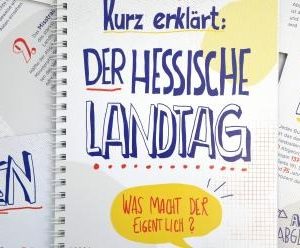 Kurz erklärt:
DER HESSISCHE
LANDTAG
WAS MACHT DER
EIGENTLICH?